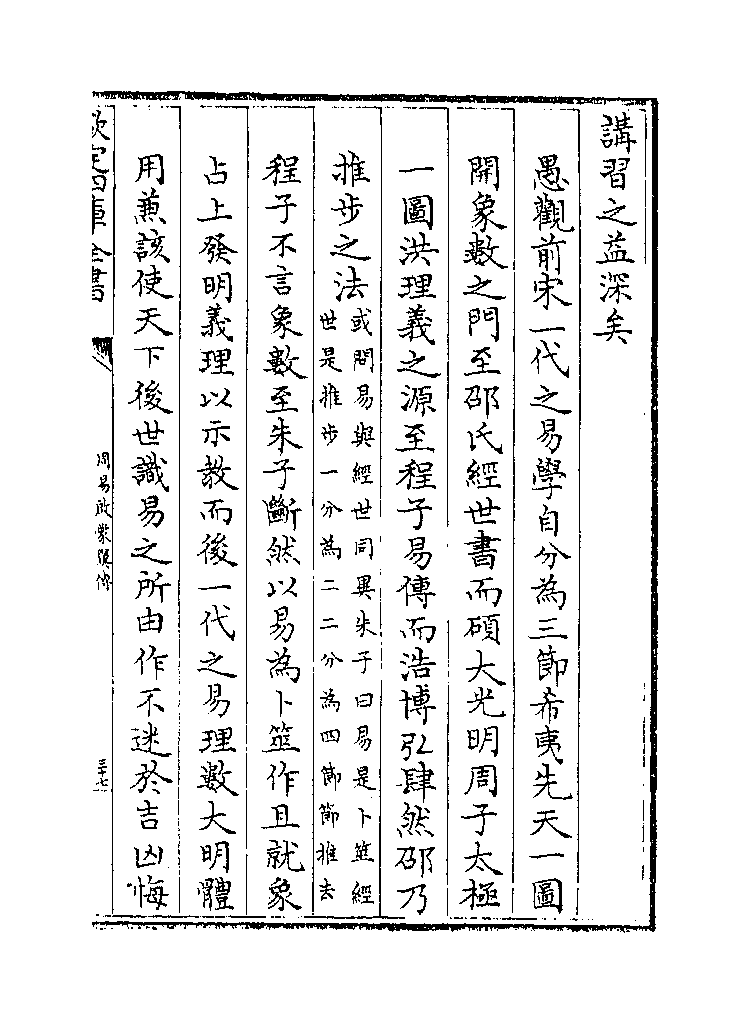 講習之益深矣
愚觀前宋一代之易學自分為三節希夷先天一圖
開象數之門至邵氏經世書而碩大光明周子太極
一圖洪理義之源至程子易傳而浩博弘肆然邵乃
推步之法
或問易與經世同異朱子曰易是卜筮經
世是推步一分為二二分為四節節推去
程子不言象數至朱子斷然以易為卜筮作且就象
占上發明義理以示教而後一代之易理數大明體
用兼該使天下後世識易之所由作不迷於吉凶悔
欽定四庫全書
周易啟蒙翼傳
三十七